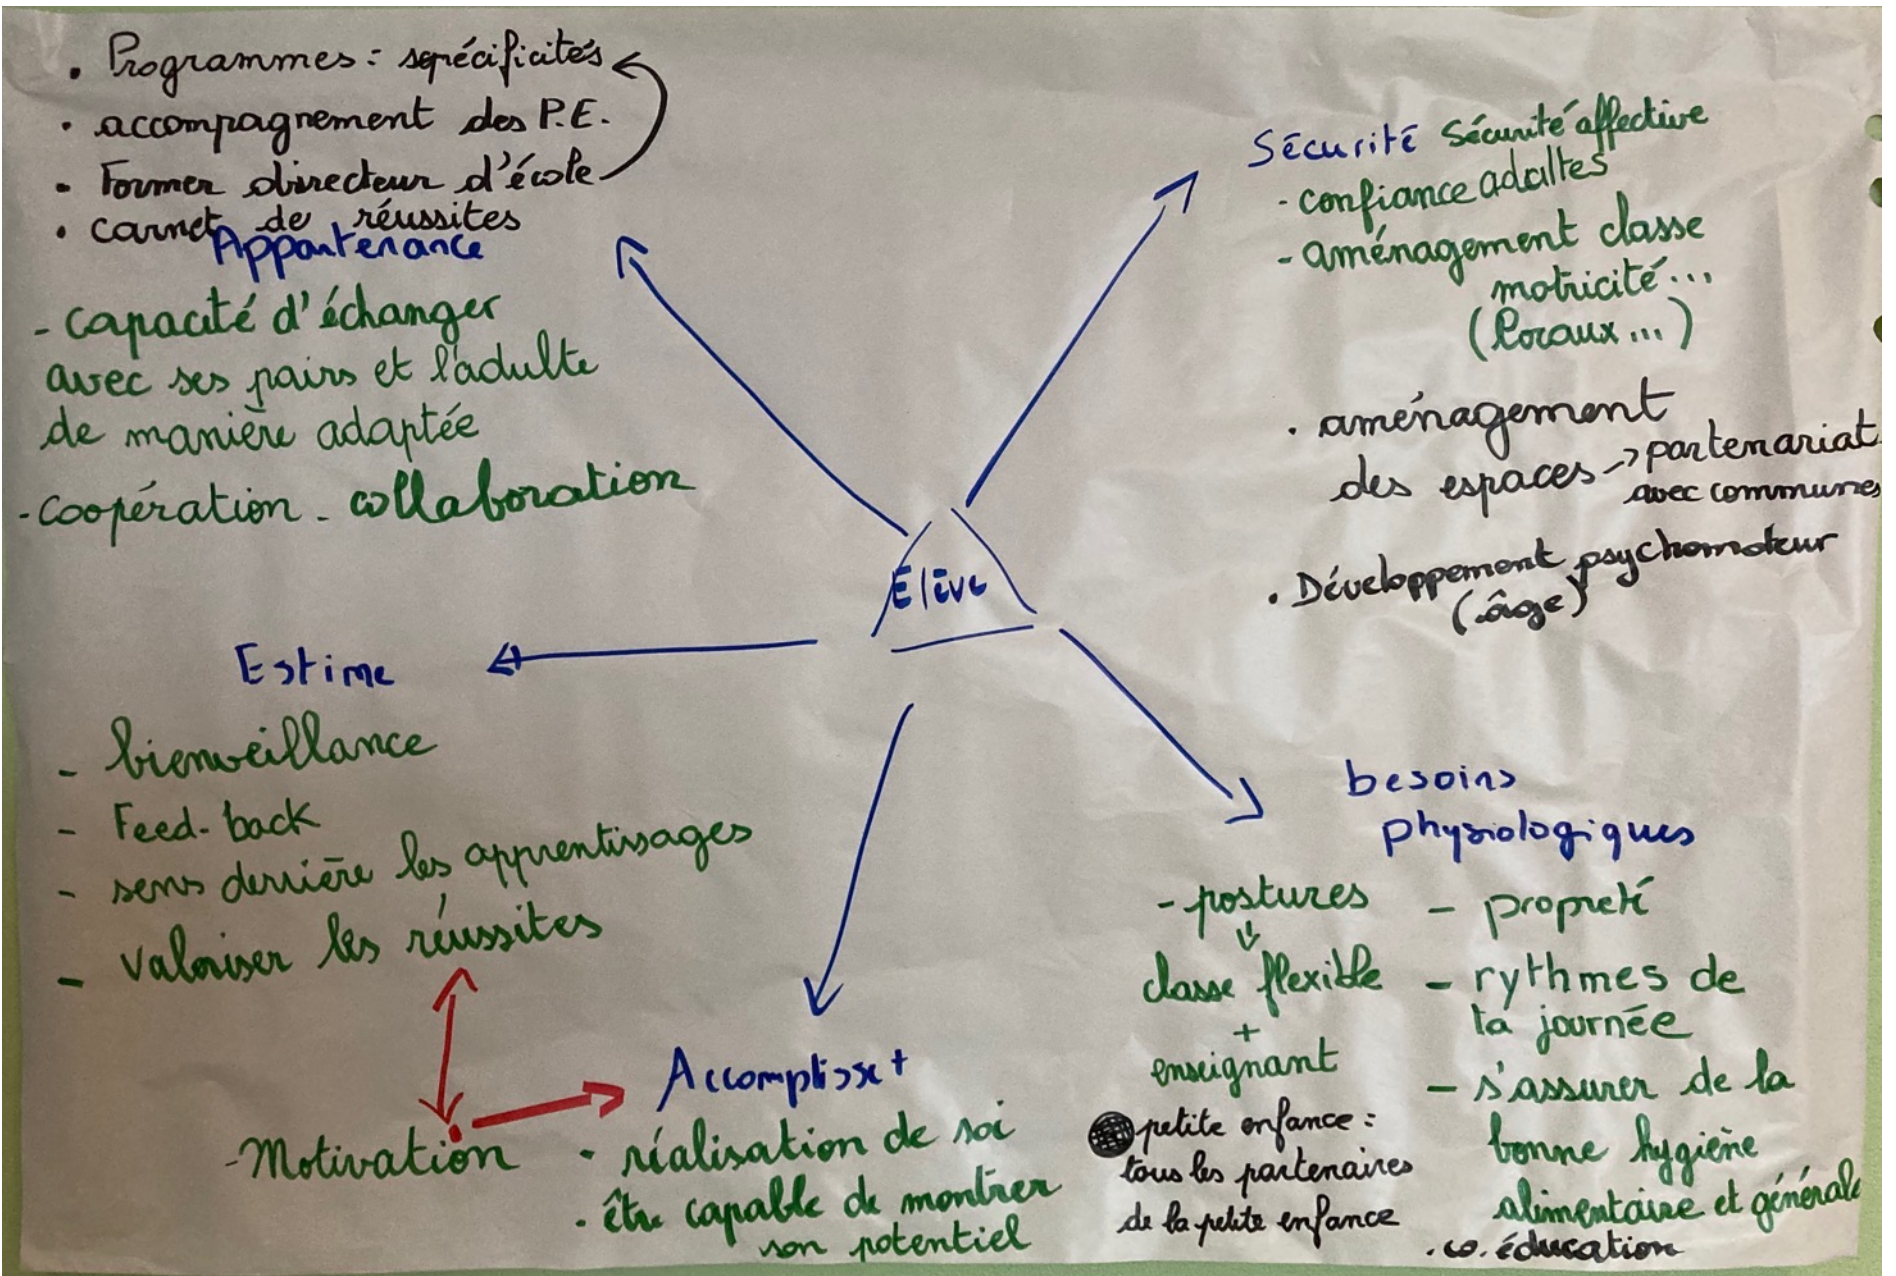 . Programmes : spécificités
. accompagnement des P.E.
. Former directeur d'école
. carnet de réussites
Appartenance
- capacité d'échanger
avec ses pairs et l'adulte
de manière adaptée
- coopération - collaboration
Sécurité Sécurité affective
- confiance adultes
- aménagement classe
motricité...
(locaux...)
. aménagement
des espaces -> partenariat
avec communes
. Développement psychomoteur
(âge)
Elève
Estime
- bienveillance
- Feed-back
- sens derrière les apprentissages
- valoriser les réussites
- Motivation
Accomplisset
. réalisation de soi
. être capable de montrer
son potentiel
besoins
physiologiques
- postures
classe flexible
+
enseignant
petite enfance :
tous les partenaires
de la petite enfance
- propreté
- rythmes de
la journée
- s'assurer de la
bonne hygiène
alimentaire et générale
. co. éducation